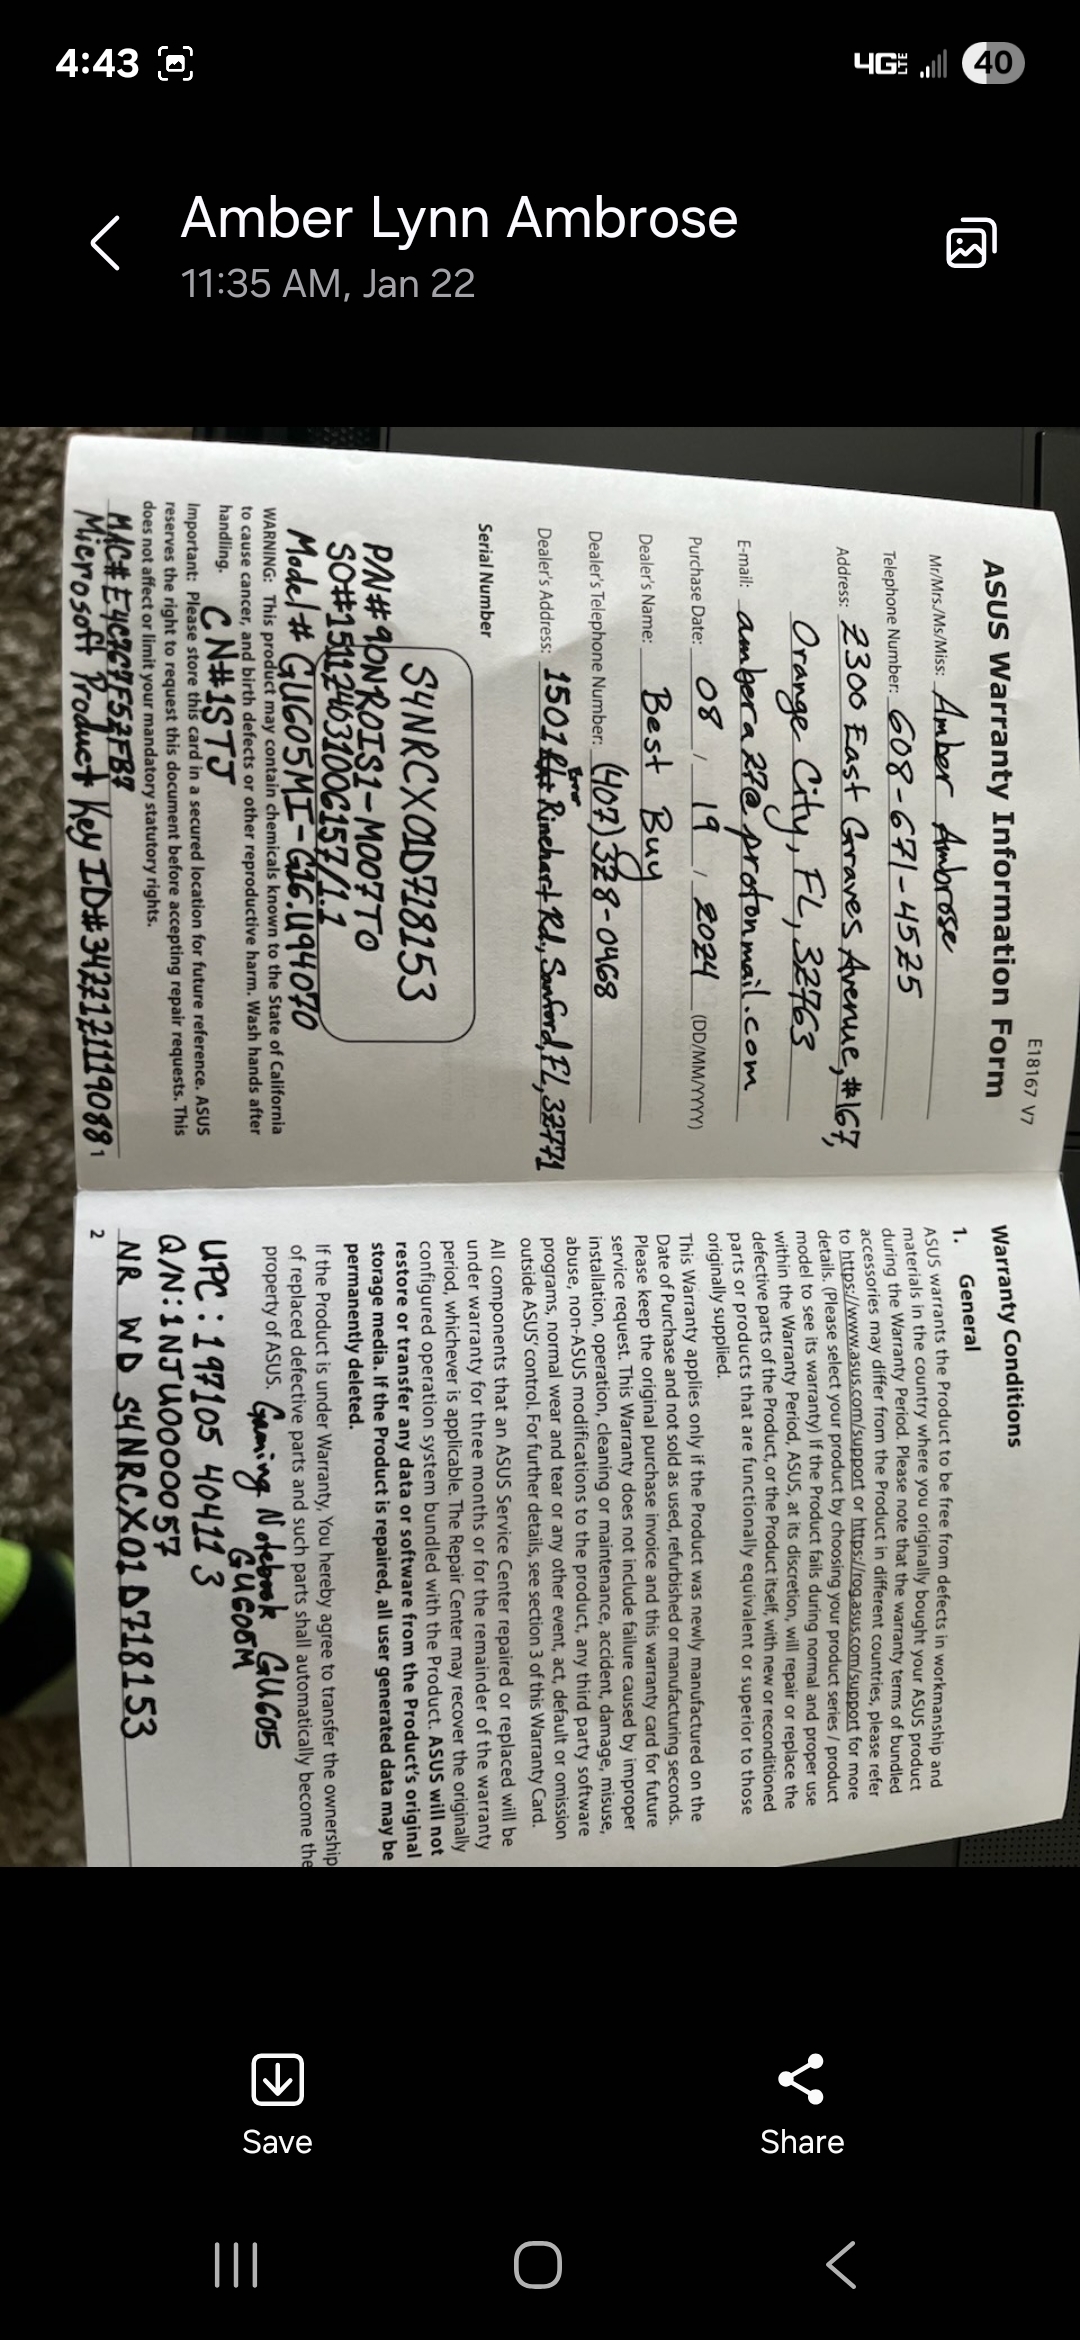 4:43
4G LTE
40
Amber Lynn Ambrose
11:35 AM, Jan 22
E18167 V7
ASUS Warranty Information Form
Mr/Mrs./Ms/Miss: Amber Ambrose
Telephone Number: 608-671-4525
Address: 2300 East Graves Avenue, #167,
Orange City, FL, 32763
E-mail: ambera27@protonmail.com
Purchase Date: 08 / 19 / 2024 (DD/MM/YYYY)
Dealer's Name: Best Buy
Dealer's Telephone Number: (407) 328-0468
Error
Dealer's Address: 1501 Rinehart Rd., Sanford, FL, 32771
Serial Number
S4NRCX01D718153
P/N#90NR0IS1-M007T0
SO#1511246310G157/1.1
Model# GU605MI-G16.U94070
WARNING: This product may contain chemicals known to the State of California
to cause cancer, and birth defects or other reproductive harm. Wash hands after
handling.
CN#1STJ
Important: Please store this card in a secured location for future reference. ASUS
reserves the right to request this document before accepting repair requests. This
does not affect or limit your mandatory statutory rights.
MAC# E4C7C7F52FB7
Microsoft Product Key ID#3422121119088
1
Warranty Conditions
1. General
ASUS warrants the Product to be free from defects in workmanship and
materials in the country where you originally bought your ASUS product
during the Warranty Period. Please note that the warranty terms of bundled
accessories may differ from the Product in different countries, please refer
to https://www.asus.com/support or https://rog.asus.com/support for more
details. (Please select your product by choosing your product series / product
model to see its warranty) If the Product fails during normal and proper use
within the Warranty Period, ASUS, at its discretion, will repair or replace the
defective parts of the Product, or the Product itself, with new or reconditioned
parts or products that are functionally equivalent or superior to those
originally supplied.
This Warranty applies only if the Product was newly manufactured on the
Date of Purchase and not sold as used, refurbished or manufacturing seconds.
Please keep the original purchase invoice and this warranty card for future
service request. This Warranty does not include failure caused by improper
installation, operation, cleaning or maintenance, accident, damage, misuse,
abuse, non-ASUS modifications to the product, any third party software
programs, normal wear and tear or any other event, act, default or omission
outside ASUS' control. For further details, see section 3 of this Warranty Card.
All components that an ASUS Service Center repaired or replaced will be
under warranty for three months or for the remainder of the warranty
period, whichever is applicable. The Repair Center may recover the originally
configured operation system bundled with the Product. ASUS will not
restore or transfer any data or software from the Product's original
storage media. If the Product is repaired, all user generated data may be
permanently deleted.
If the Product is under Warranty, You hereby agree to transfer the ownership
of replaced defective parts and such parts shall automatically become the
property of ASUS.
Gaming Notebook GU605
GU605M
UPC: 197105 404113
Q/N: 1NJU000057
NR WD S4NRCX01D718153
2
Save
Share